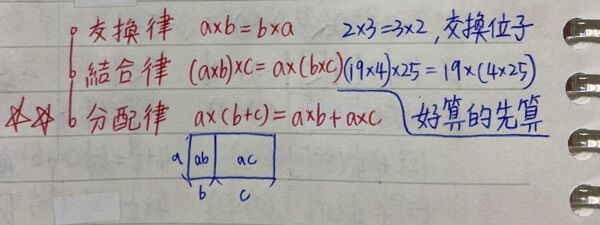 交換律 a×b=b×a 2×3=3×2,交換位子
結合律 (a×b)×c=a×(b×c) (19×4)×25=19×(4×25)
☆☆ 分配律 a×(b+c)=a×b+a×c 好算的先算
a ab ac
b c